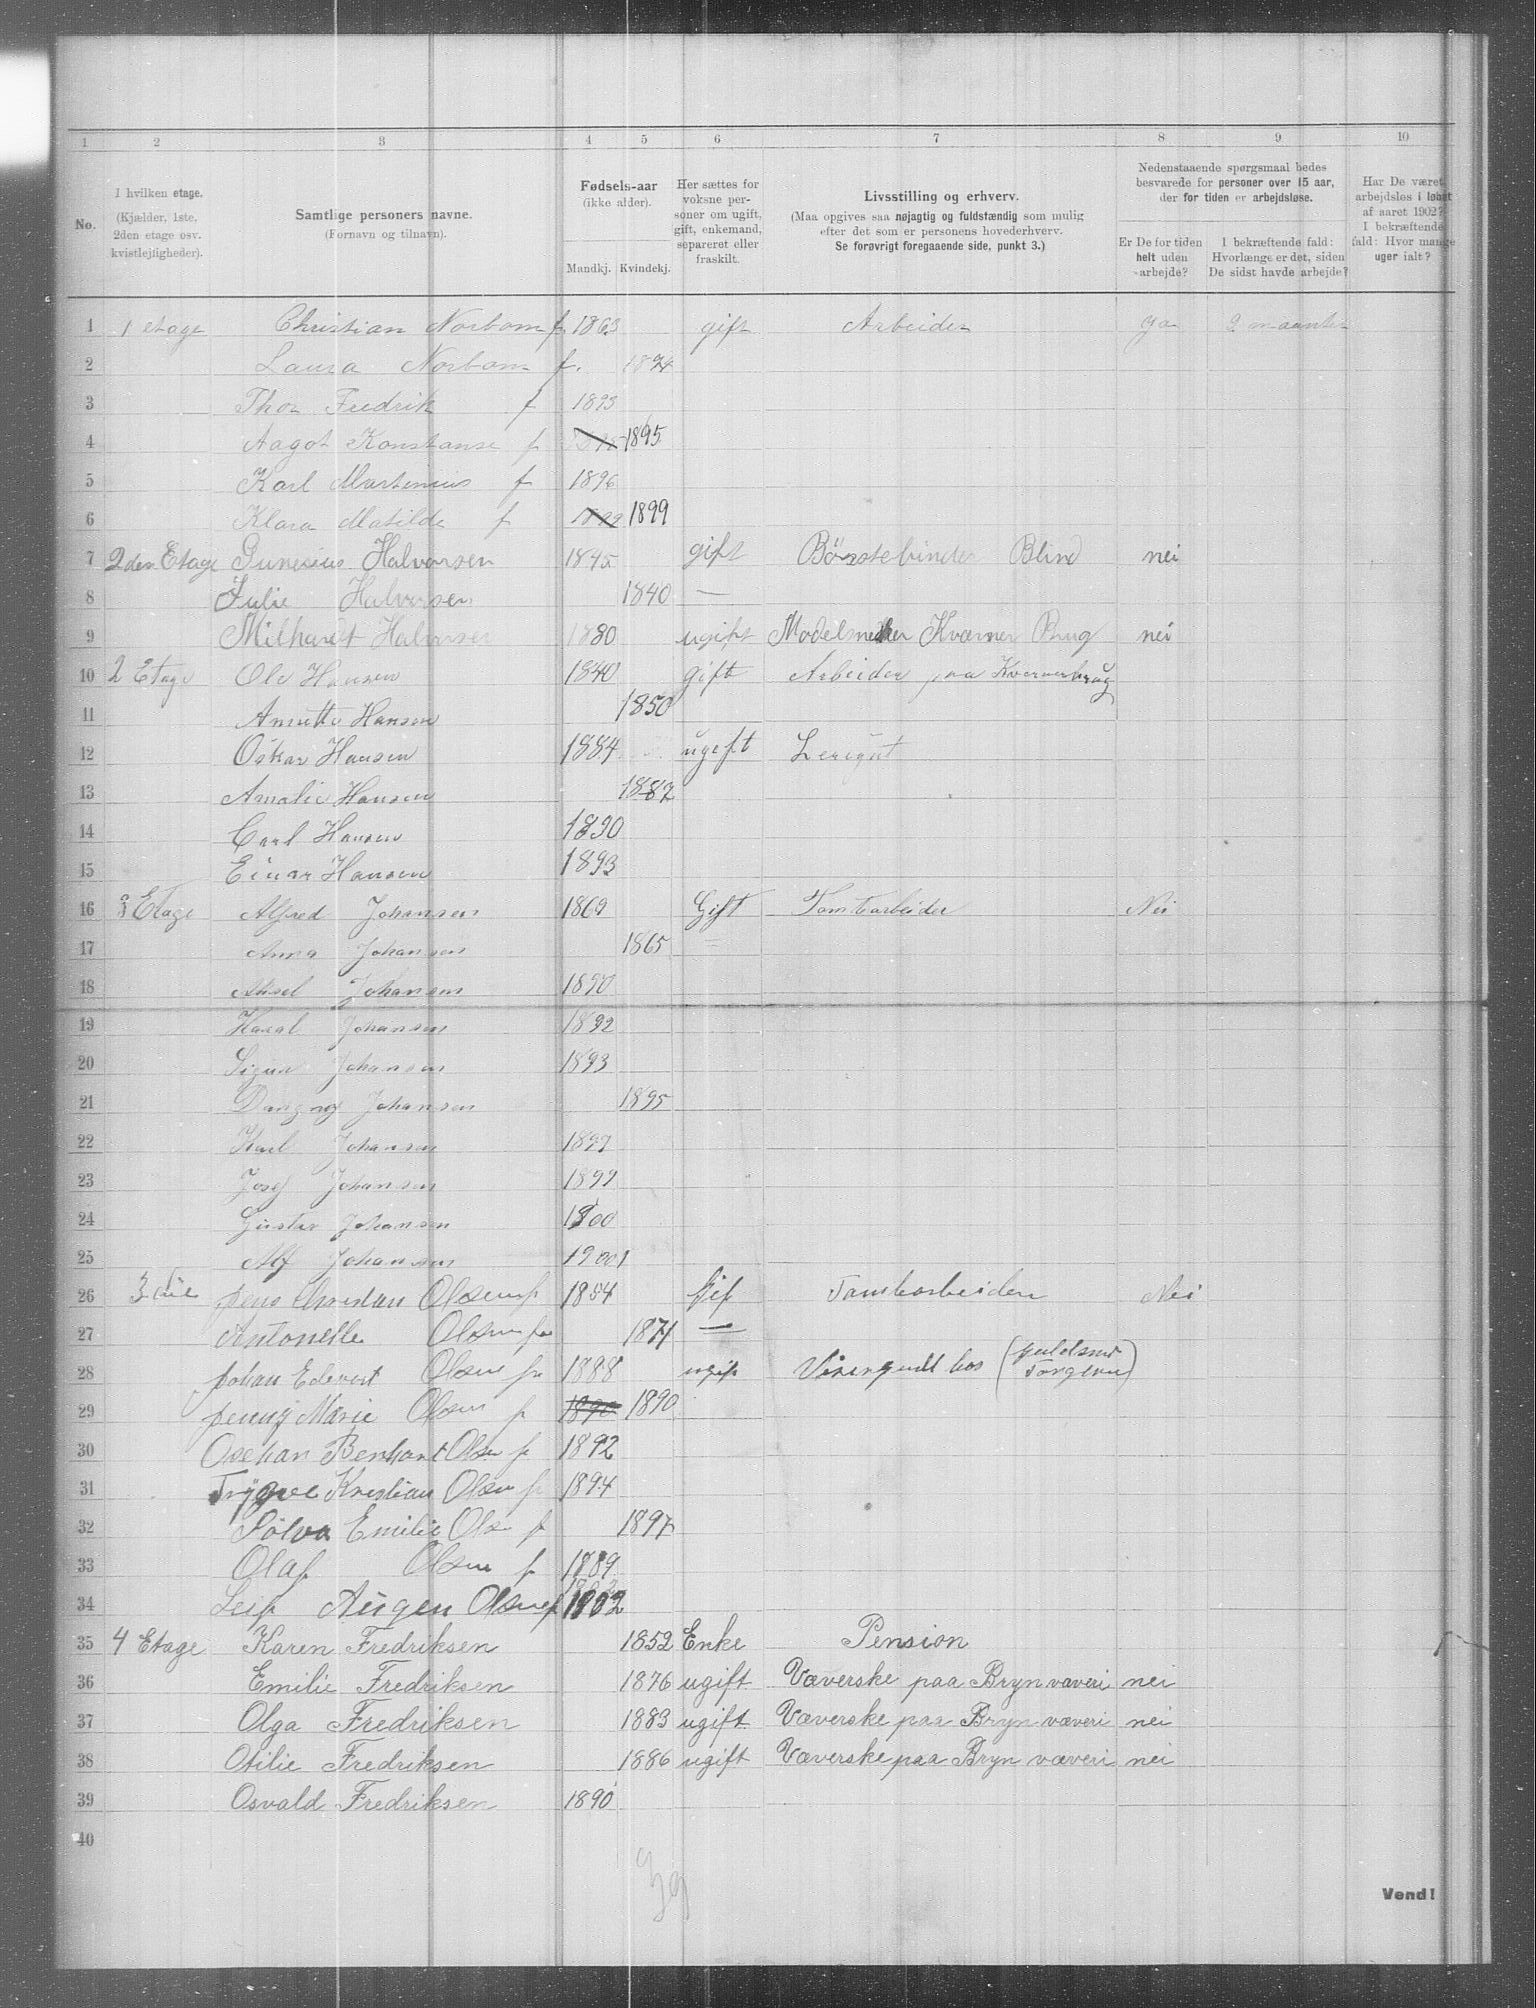 1 2 3 4 5 6 7 8 9 10
No.
I hvilken etage.
(Kjælder, 1ste,
2den etage osv.
kvistlejligheder).
Samtlige personers navne.
(Fornavn og tilnavn).
Fødsels-aar
(ikke alder).
Mandkj. Kvindekj.
Her sættes for
voksne per-
soner om ugift,
gift, enkemand,
separeret eller
fraskilt.
Livsstilling og erhverv.
(Maa opgives saa nøjagtig og fuldstændig som mulig
efter det som er personens hovederhverv.
Se forøvrigt foregaaende side, punkt 3.)
Nedenstaaende spørgsmaal bedes
besvarede for personer over 15 aar,
der for tiden er arbejdsløse.
Er De for tiden
helt uden
arbejde?
I bekræftende fald:
Hvorlænge er det, siden
De sidst havde arbejde?
Har De været
arbejdsløs i løbet
af aaret 1902?
I bekræftende
fald: Hvor mange
uger ialt?
1 1 etage Christian Norbom f 1863 gift Arbeider ja 2 maanter
2 Laura Norbom f. 1874
3 Thor Fredrik f 1893
4 Aagot Konstanse f 1895
5 Karl Martinius f 1896
6 Klara Matilde f 1899
7 2den Etage Gunerius Halvorsen 1845 gift Børstebinder Blind nei
8 Julie Halvorsen 1840 —
9 Milhardt Halvorsen 1880 ugift Modelsnekker Kværner Brug nei
10 2 Etage Ole Hansen 1840 gift Arbeider paa Kvernerbrug
11 Anette Hansen 1850
12 Oskar Hansen 1884 ugeft Lerigut
13 Amalie Hansen 1887
14 Carl Hansen 1890
15 Einar Hansen 1893
16 3 Etage Alfred Johansen 1869 Gift Tomtearbeider Nei
17 Anna Johansen 1865 =
18 Aksel Johansen 1890
19 Haral Johansen 1892
20 Sigur Johansen 1893
21 Dangny Johansen 1895
22 Karl Johansen 1897
23 Josef Johansen 1899
24 Gustav Johansen 1900
25 Alf Johansen 1901
26 3die Jens Christian Olsen f 1854 Gif Tomtearbeider Nei
27 Antonette Olsen f 1871 —
28 Johan Edevart Olsen f 1888 ugif Visergutt hos (guldsmed Torgersen)
29 Jenny Marie Olsen f 1890 1890
30 Osehan Benhart Olsen f 1892
31 Trygve Kristian Olsen f 1894
32 Sølva Emilie Olsen f 1897
33 Olaf Olsen f 1889
34 Leif Aügen Olsen f 1902
35 4 Etage Karen Fredriksen 1852 Enke Pension
36 Emilie Fredriksen 1876 ugift Væverske paa Bryn væveri nei
37 Olga Fredriksen 1883 ugift Væverske paa Bryn væveri nei
38 Otilie Fredriksen 1886 ugift Væverske paa Bryn væveri nei
39 Osvald Fredriksen 1890
40
39
Vend!